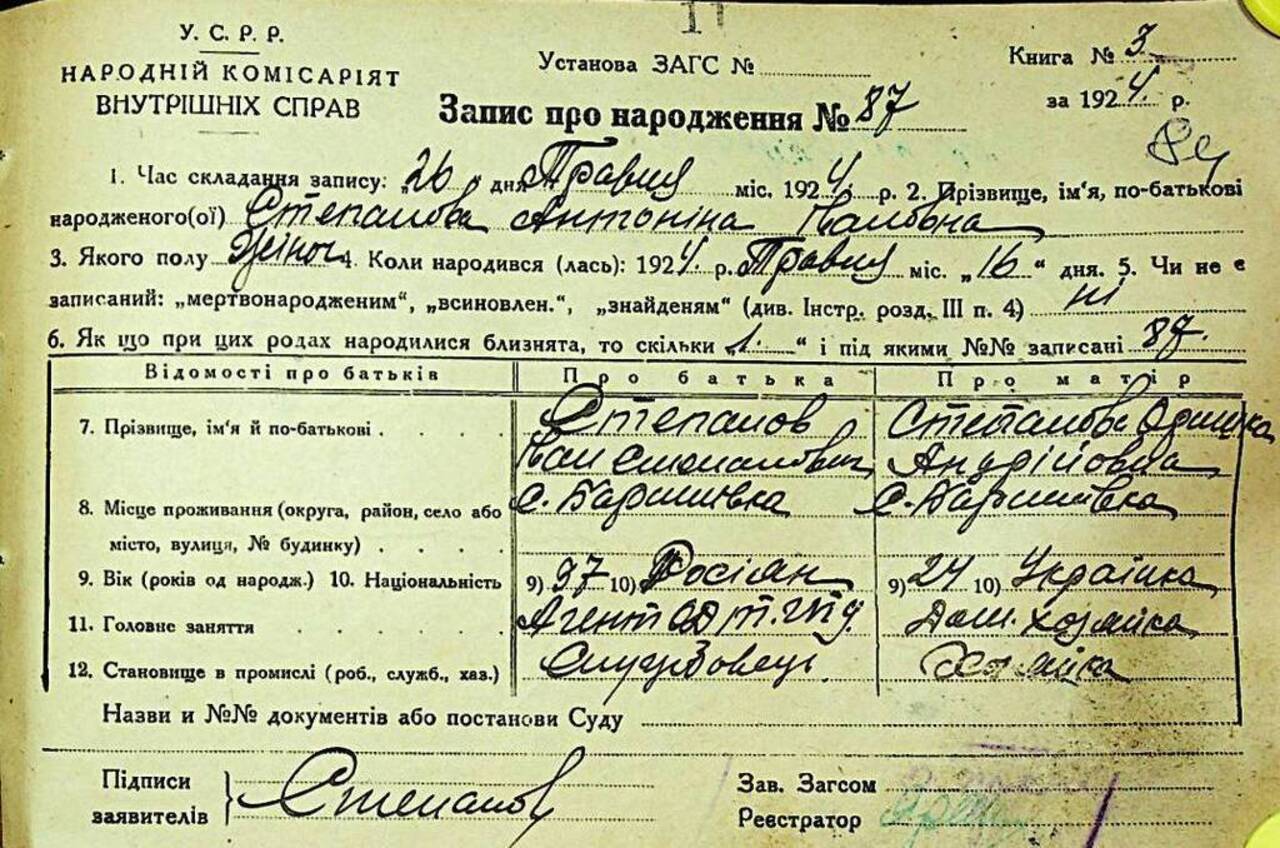 У. С. Р. Р.
НАРОДНІЙ КОМІСАРІЯТ
ВНУТРІШНІХ СПРАВ
Установа ЗАГС №
Книга № 3
за 1924 р.
Запис про народження № 87
1. Час складання запису: „26" дня Травня міс. 1924 р. 2. Прізвище, ім'я, по-батькові
народженого(ої) Степанова Антоніна Павловна
3. Якого полу Жіноч 4. Коли народився (лась): 1924 р. Травня міс. „16" дня. 5. Чи не є
записаний: „мертвонародженим", „всиновлен.", „знайденям" (див. Інстр. розд. III п. 4) ні
6. Як що при цих родах народилися близнята, то скільки „1" і під якими №№ записані 87.
Відомості про батьків Про батька Про матір
7. Прізвище, ім'я й по-батькові . . . . Степанов Степанова
Степанович Андрійовна
8. Місце проживання (округа, район, село або с. Баришівка с. Баришівка
місто, вулиця, № будинку) . . . .
9. Вік (років од народж.) 10. Національність 9) 37 10) Росіян 9) 24 10) Українка
11. Головне заняття . . . . . Агент Дом. хозяйка
12. Становище в промислі (роб., служб., хаз.) Службовець Хозяйка
Назви и №№ документів або постанови Суду
Підписи
заявителів } Степанов
Зав. Загсом
Реєстратор